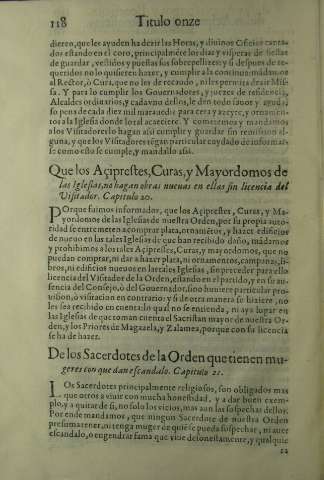 118 Titulo onze
dieren, que les ayuden ha dezir las Horas, y diuinos Oficios canta-
dos estando en el coro, principalmēte los dias y visperas de fiestas
de guardar, vestidos y puestas sus sobrepellizes: y si despues de re-
queridos no lo quisieren hazer, y cumplir a la continua: mādamos
al Rector, ò Cura, que no les de recaudo, ni les permita dezir Mis-
sa. Y para lo cumplir los Gouernadores, y juezes de residencia,
Alcaldes ordinarios, y cada vno dellos, le den todo fauor y ayuda,
so pena de cada diez mil marauedis para cera y azeyte, y ornamen-
tos a la Iglesia donde lo tal acaeciere. Y cometemos y mandamos
a los Visitadores lo hagan assi cumplir y guardar sin remission al-
guna, y que los Visitadores tēgan particular cuydado de informar-
se como esto se cumple, y mandallo assi.
Que los Açiprestes, Curas, y Mayordomos de
las Iglesias, no hagan obras nueuas en ellas sin licencia del
Visitador. Capitulo 20.
POrque fuimos informados, que los Açiprestes, Curas, y Ma-
yordomos de las Iglesias de nuestra Orden, por su propia auto-
ridad se entremeten a comprar plata, ornamētos, y hazer edificios
de nueuo en las tales Iglesias de que han recibido daño, mādamos
y prohibimos a los tales Açiprestes, Curas, y mayordomos, que no
puedan comprar, ni dar a hazer plata, ni ornamentos, campanas, li-
bros, ni edificios nueuos en las tales Iglesias, sin preceder para ello
licencia del Visitador de la Orden, estando en el partido, y en su au-
sencia del Consejo, ò del Gouernador, sino huuiere particular pro-
uision, ò visitacion en contrario: y si de otra manera se hiziere, no
les sea recibido en cuenta: lo qual no se entienda, ni aya lugar en
las Iglesias de que toman cuenta el Sacristan mayor de nuestra Or-
den, y los Priores de Magazela, y Zalamea, porque con su licencia
se ha de hazer.
De los Sacerdotes de la Orden que tienen mu-
geres con que dan escandalo. Capitulo 21.
LOs Sacerdotes principalmente religiosos, son obligados mas
que otros a viuir con mucha honestidad, y a dar buen exem-
plo, y a quitar de si, no solo los vicios, mas aun las sospechas dellos.
Por ende mandamos, que ningun Sacerdote de nuestra Orden
presuma tener, ni tenga muger de quiē se pueda sospechar, ni auer
escandalo, o engendrar fama que viue desonestamente, y qualquie